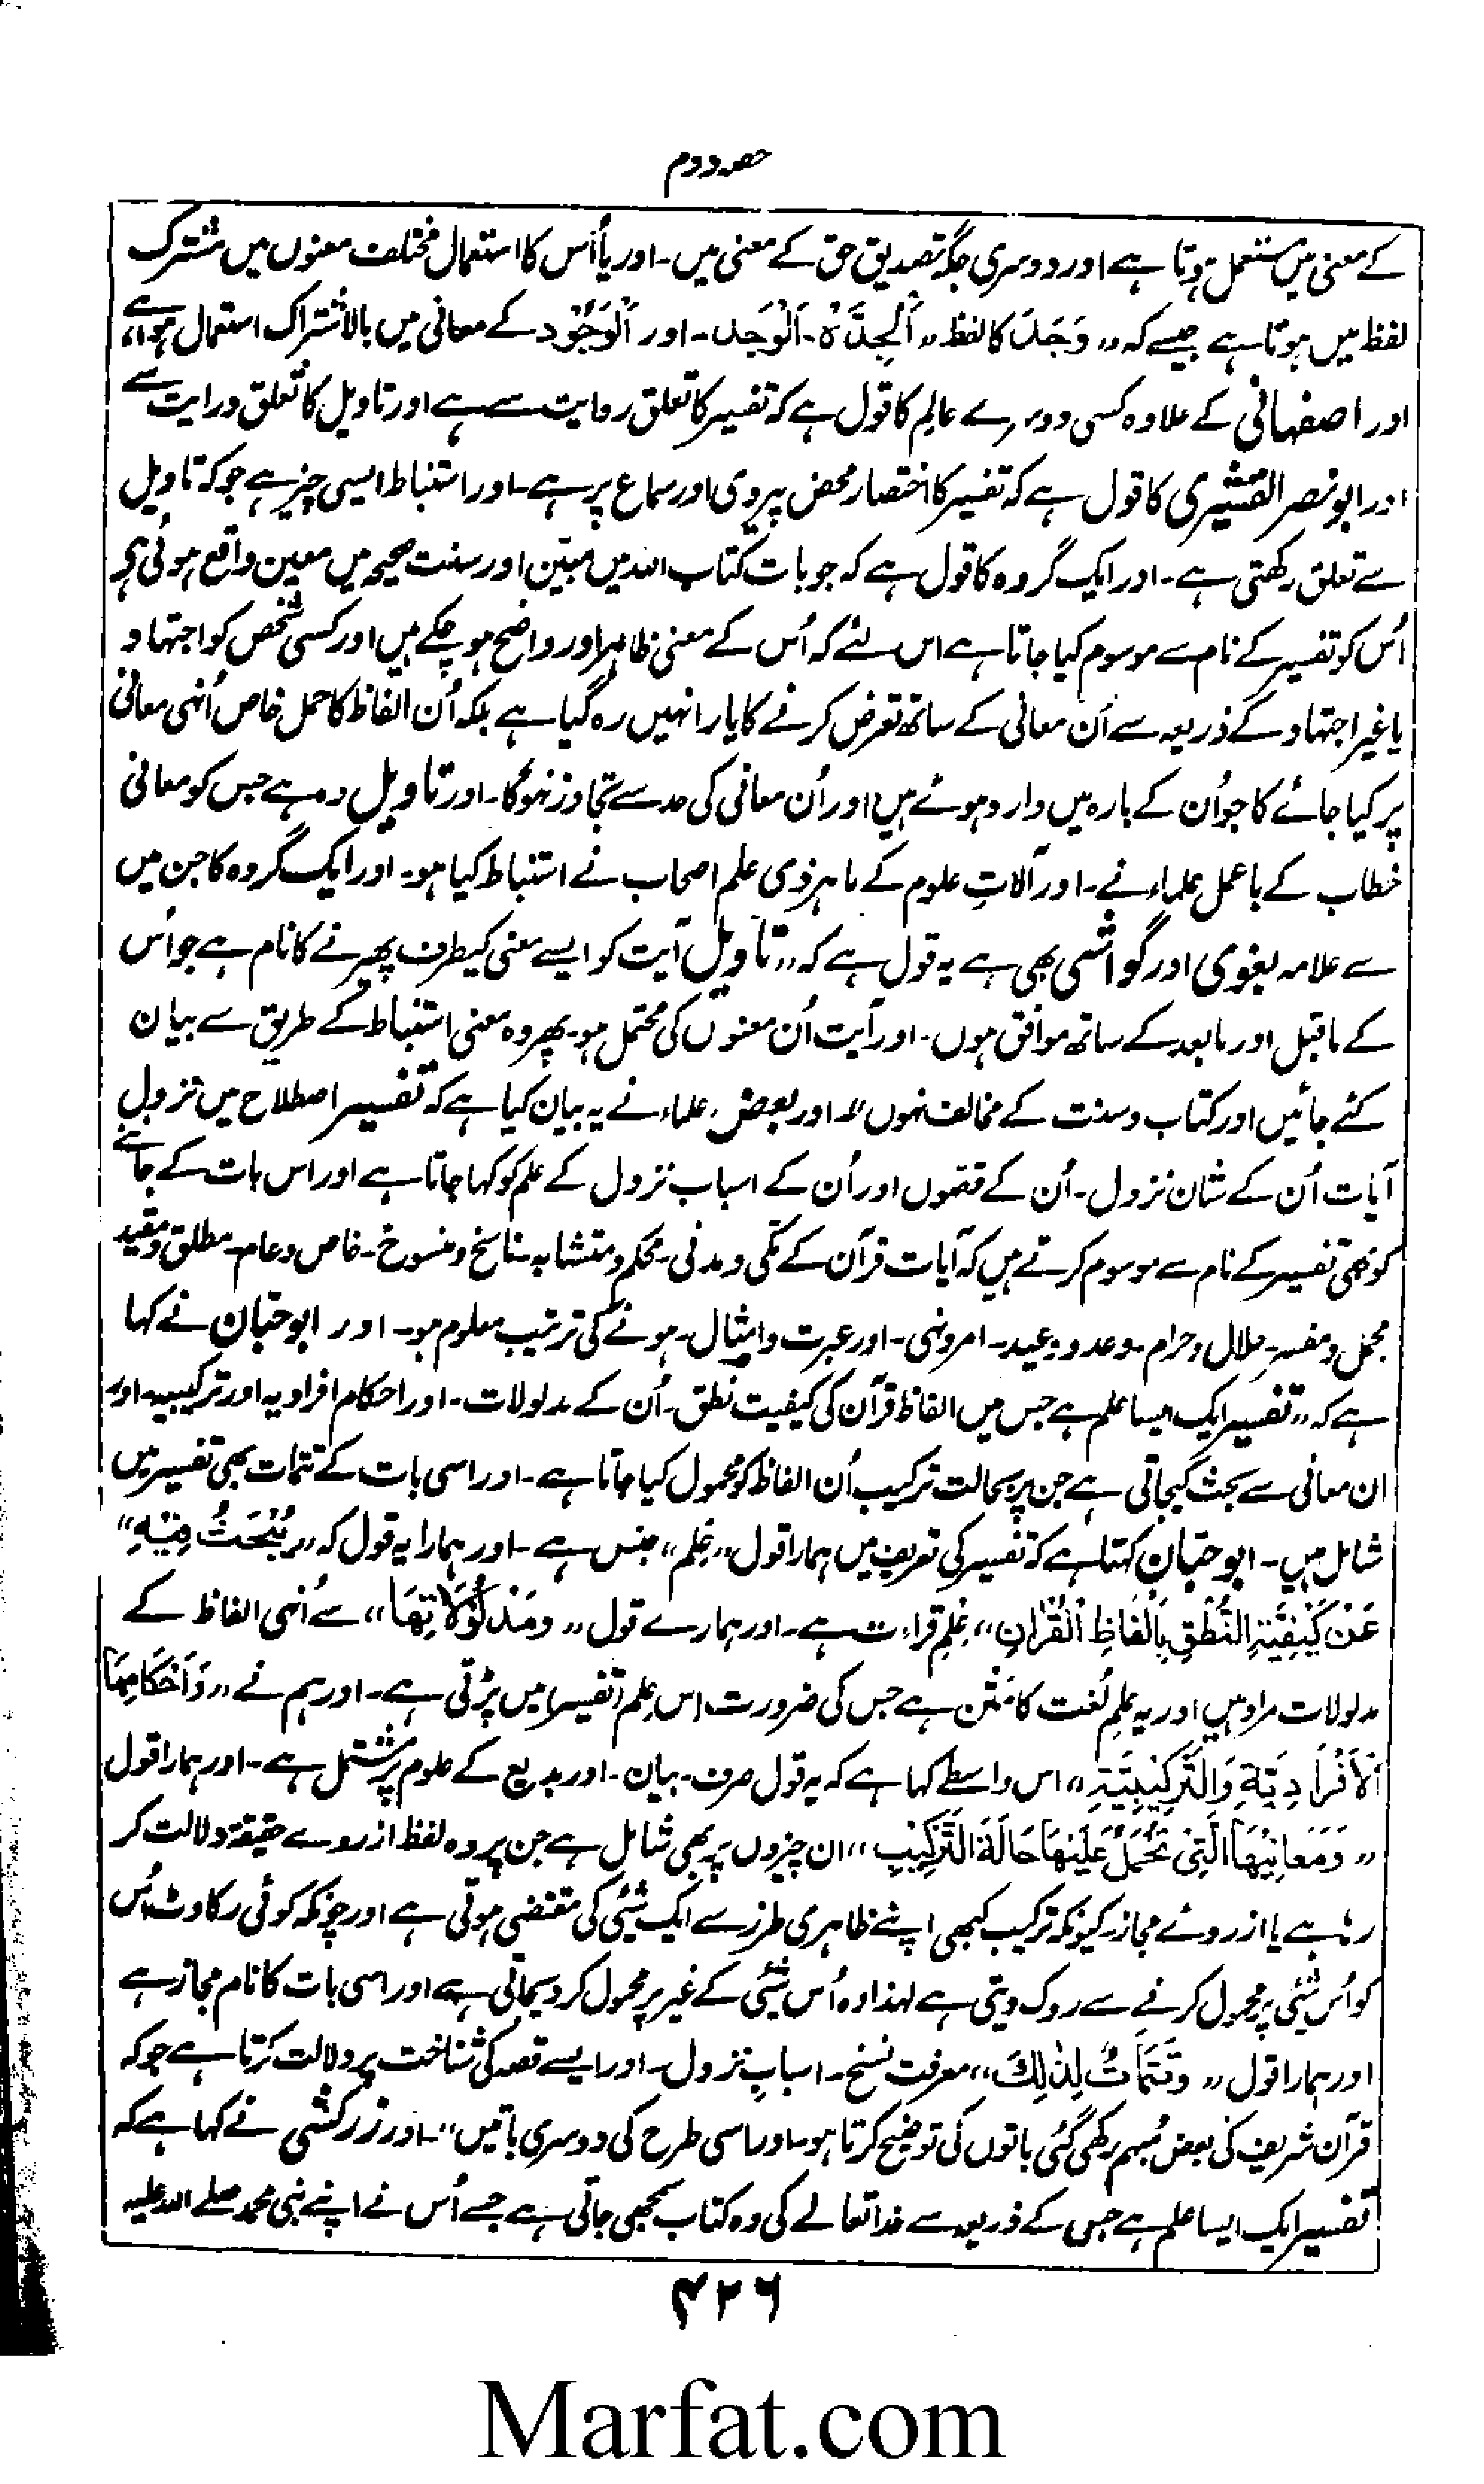 حصہ دوم
کے معنی میں مستعمل ہوتا ہے اور دوسری جگہ تصدیق حق کے معنی میں۔ اور یا اُس کا استعمال مختلف معنوں میں مشترک
لفظ میں ہوتا ہے جیسے کہ ،، وَجَدَ کا لفظ ،، اَلْجِدَّةُ۔ اَلْوَجد۔ اور اَلْوُجُوْد کے معانی میں بالاشتراک استعمال ہوا ہے،،
اور اصفہانی کے علاوہ کسی دوسرے عالم کا قول ہے کہ تفسیر کا تعلق روایت سے ہے اور تاویل کا تعلق درایت سے
اور ابو نصر القشیری کا قول ہے کہ تفسیر کا اختصار محض پیروی اور سماع پر ہے۔ اور استنباط ایسی چیز ہے جو کہ تاویل
سے تعلق رکھتی ہے۔ اور ایک گروہ کا قول ہے کہ جو بات کتاب اللہ میں مبیّن اور سنت صحیحہ میں معین واقع ہوئی ہو
اُس کو تفسیر کے نام سے موسوم کیا جاتا ہے اس لئے کہ اُس کے معنی ظاہر اور واضح ہو چکے ہیں اور کسی شخص کو اجتہاد
یا غیر اجتہاد کے ذریعہ سے اُن معانی کے ساتھ تعرض کرنے کا یارا نہیں رہ گیا ہے بلکہ اُن الفاظ کا حمل خاص اُنہی معانی
پر کیا جائے گا جو اُن کے بارہ میں وارد ہوئے ہیں اور اُن معانی کی حد سے تجاوز نہوگا۔ اور تاویل وہ ہے جس کو معانی
خطاب کے باعمل علماء نے۔ اور آلاتِ علوم کے ماہر ذی علم اصحاب نے استنباط کیا ہو۔ اور ایک گروہ کا جن میں
سے علامہ بغوی اور گواشی بھی ہے یہ قول ہے کہ ،، تاویل آیت کو ایسے معنی کیطرف پھیرنے کا نام ہے جو اُس
کے ماقبل اور مابعد کے ساتھ موافق ہوں۔ اور آیت اُن معنوں کی محتمل ہو۔ پھر وہ معنی استنباط کے طریق سے بیان
کئے جائیں اور کتاب و سنت کے مخالف نہوں ،، اور بعض علماء نے یہ بیان کیا ہے کہ تفسیر اصطلاح میں نزول
آیات اُن کے شان نزول۔ اُن کے قصّوں اور اُن کے اسباب نزول کے علم کو کہا جاتا ہے اور اس بات کے جاننے
کو بھی تفسیر کے نام سے موسوم کرتے ہیں کہ آیات قرآن کے مکّی و مدنی۔ محکم و متشابہ۔ ناسخ و منسوخ۔ خاص و عام۔ مطلق و مقید
مجمل و مفسر۔ حلال و حرام۔ وعد و وعید۔ امر و نہی۔ اور عبرت و امثال۔ ہونے کی ترتیب معلوم ہو۔ اور ابو حبّان نے کہا
ہے کہ ،، تفسیر ایک ایسا علم ہے جس میں الفاظ قرآن کی کیفیت نطق۔ اُن کے مدلولات۔ اور احکام افرادیہ اور ترکیبیہ۔ اور
ان معانی سے بحث کیجاتی ہے جن پر بحالت ترکیب اُن الفاظ کو محمول کیا جاتا ہے۔ اور اسی بات کے تتمات بھی تفسیر میں
شامل ہیں۔ ابو حبّان کہتا ہے کہ تفسیر کی تعریف میں ہمارا قول ،، عِلم ،، جنس ہے۔ اور ہمارا یہ قول کہ ،، یُبْحَثُ فِیْہِ ،،
عَنْ کَیْفِیَّۃِ النُّطْقِ بِاَلْفَاظِ الْقُرْاٰنِ ،، عِلم قراءت ہے۔ اور ہمارے قول ،، وَمَدْلُوْلَاتِھَا ،، سے اُنہی الفاظ کے
مدلولات مراد ہیں اور یہ علمِ لُغت کا متن ہے جس کی ضرورت اس عِلم (تفسیر) میں پڑتی ہے۔ اور ہم نے ،، وَاَحْکَامِھَا
اَلْاِفْرَادِیَّۃِ وَالتَّرْکِیْبِیَّۃِ ،، اس واسطے کہا ہے کہ یہ قول صرف۔ بیان۔ اور بدیع کے علوم پر مشتمل ہے۔ اور ہمارا قول
،، وَمَعَانِیْھَا الَّتِیْ تُحْمَلُ عَلَیْھَا حَالَۃَ التَّرْکِیْبِ ،، ان چیزوں پر بھی شامل ہے جن پر وہ لفظ از روے حقیقۃ دلالت کر
رہا ہے یا از روئے مجاز۔ کیونکہ ترکیب کبھی اپنے ظاہری طرز سے ایک شئی کی مقتضی ہوتی ہے اور چونکہ کوئی رکاوٹ اُس
کو اُس شئی پر محمول کرنے سے روک دیتی ہے لہذا وہ اُس شئی کے غیر پر محمول کر دیجاتی ہے اور اسی بات کا نام مجاز ہے
اور ہمارا قول ،، وَتَتِمَّاتٌ لِذٰلِکَ ،، معرفت نسخ۔ اسبابِ نزول۔ اور ایسے قصہ کی شناخت پر دلالت کرتا ہے جو کہ
قرآن شریف کی بعض مُبہم رکھی گئی باتوں کی توضیح کرتا ہو۔ اور اسی طرح کی دوسری باتیں ،،۔ اور زرکشی نے کہا ہے کہ
تفسیر ایک ایسا علم ہے جس کے ذریعہ سے خدا تعالےٰ کی وہ کتاب سمجھی جاتی ہے جسے اُس نے اپنے نبی محمد صلے اللہ علیہ
۴۲۶
Marfat.com